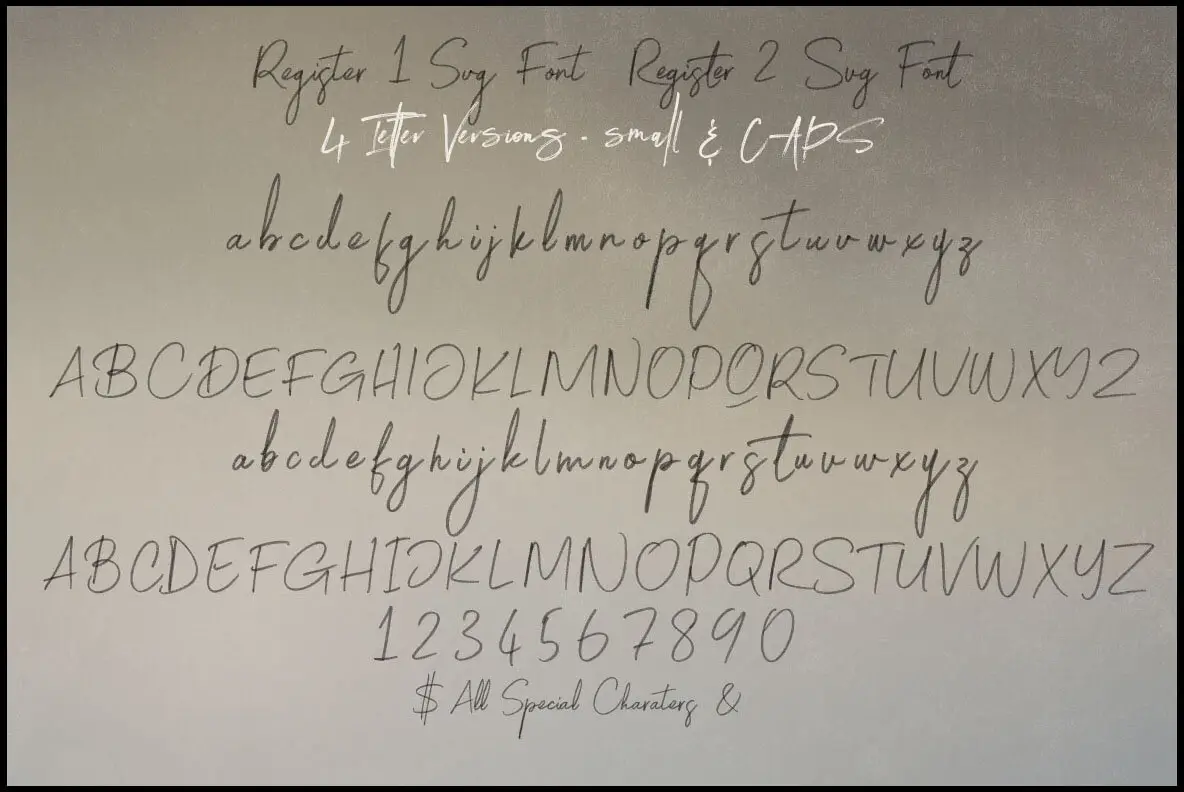 Register 1 Svg Font Register 2 Svg Font
4 letter Versions - small & CAPS
abcdefghijklmnopqrstuvwxyz
ABCDEFGHIJKLMNOPQRSTUVWXYZ
abcdefghijklmnopqrstuvwxyz
ABCDEFGHIJKLMNOPQRSTUVWXYZ
1234567890
$ All Special Charaters &